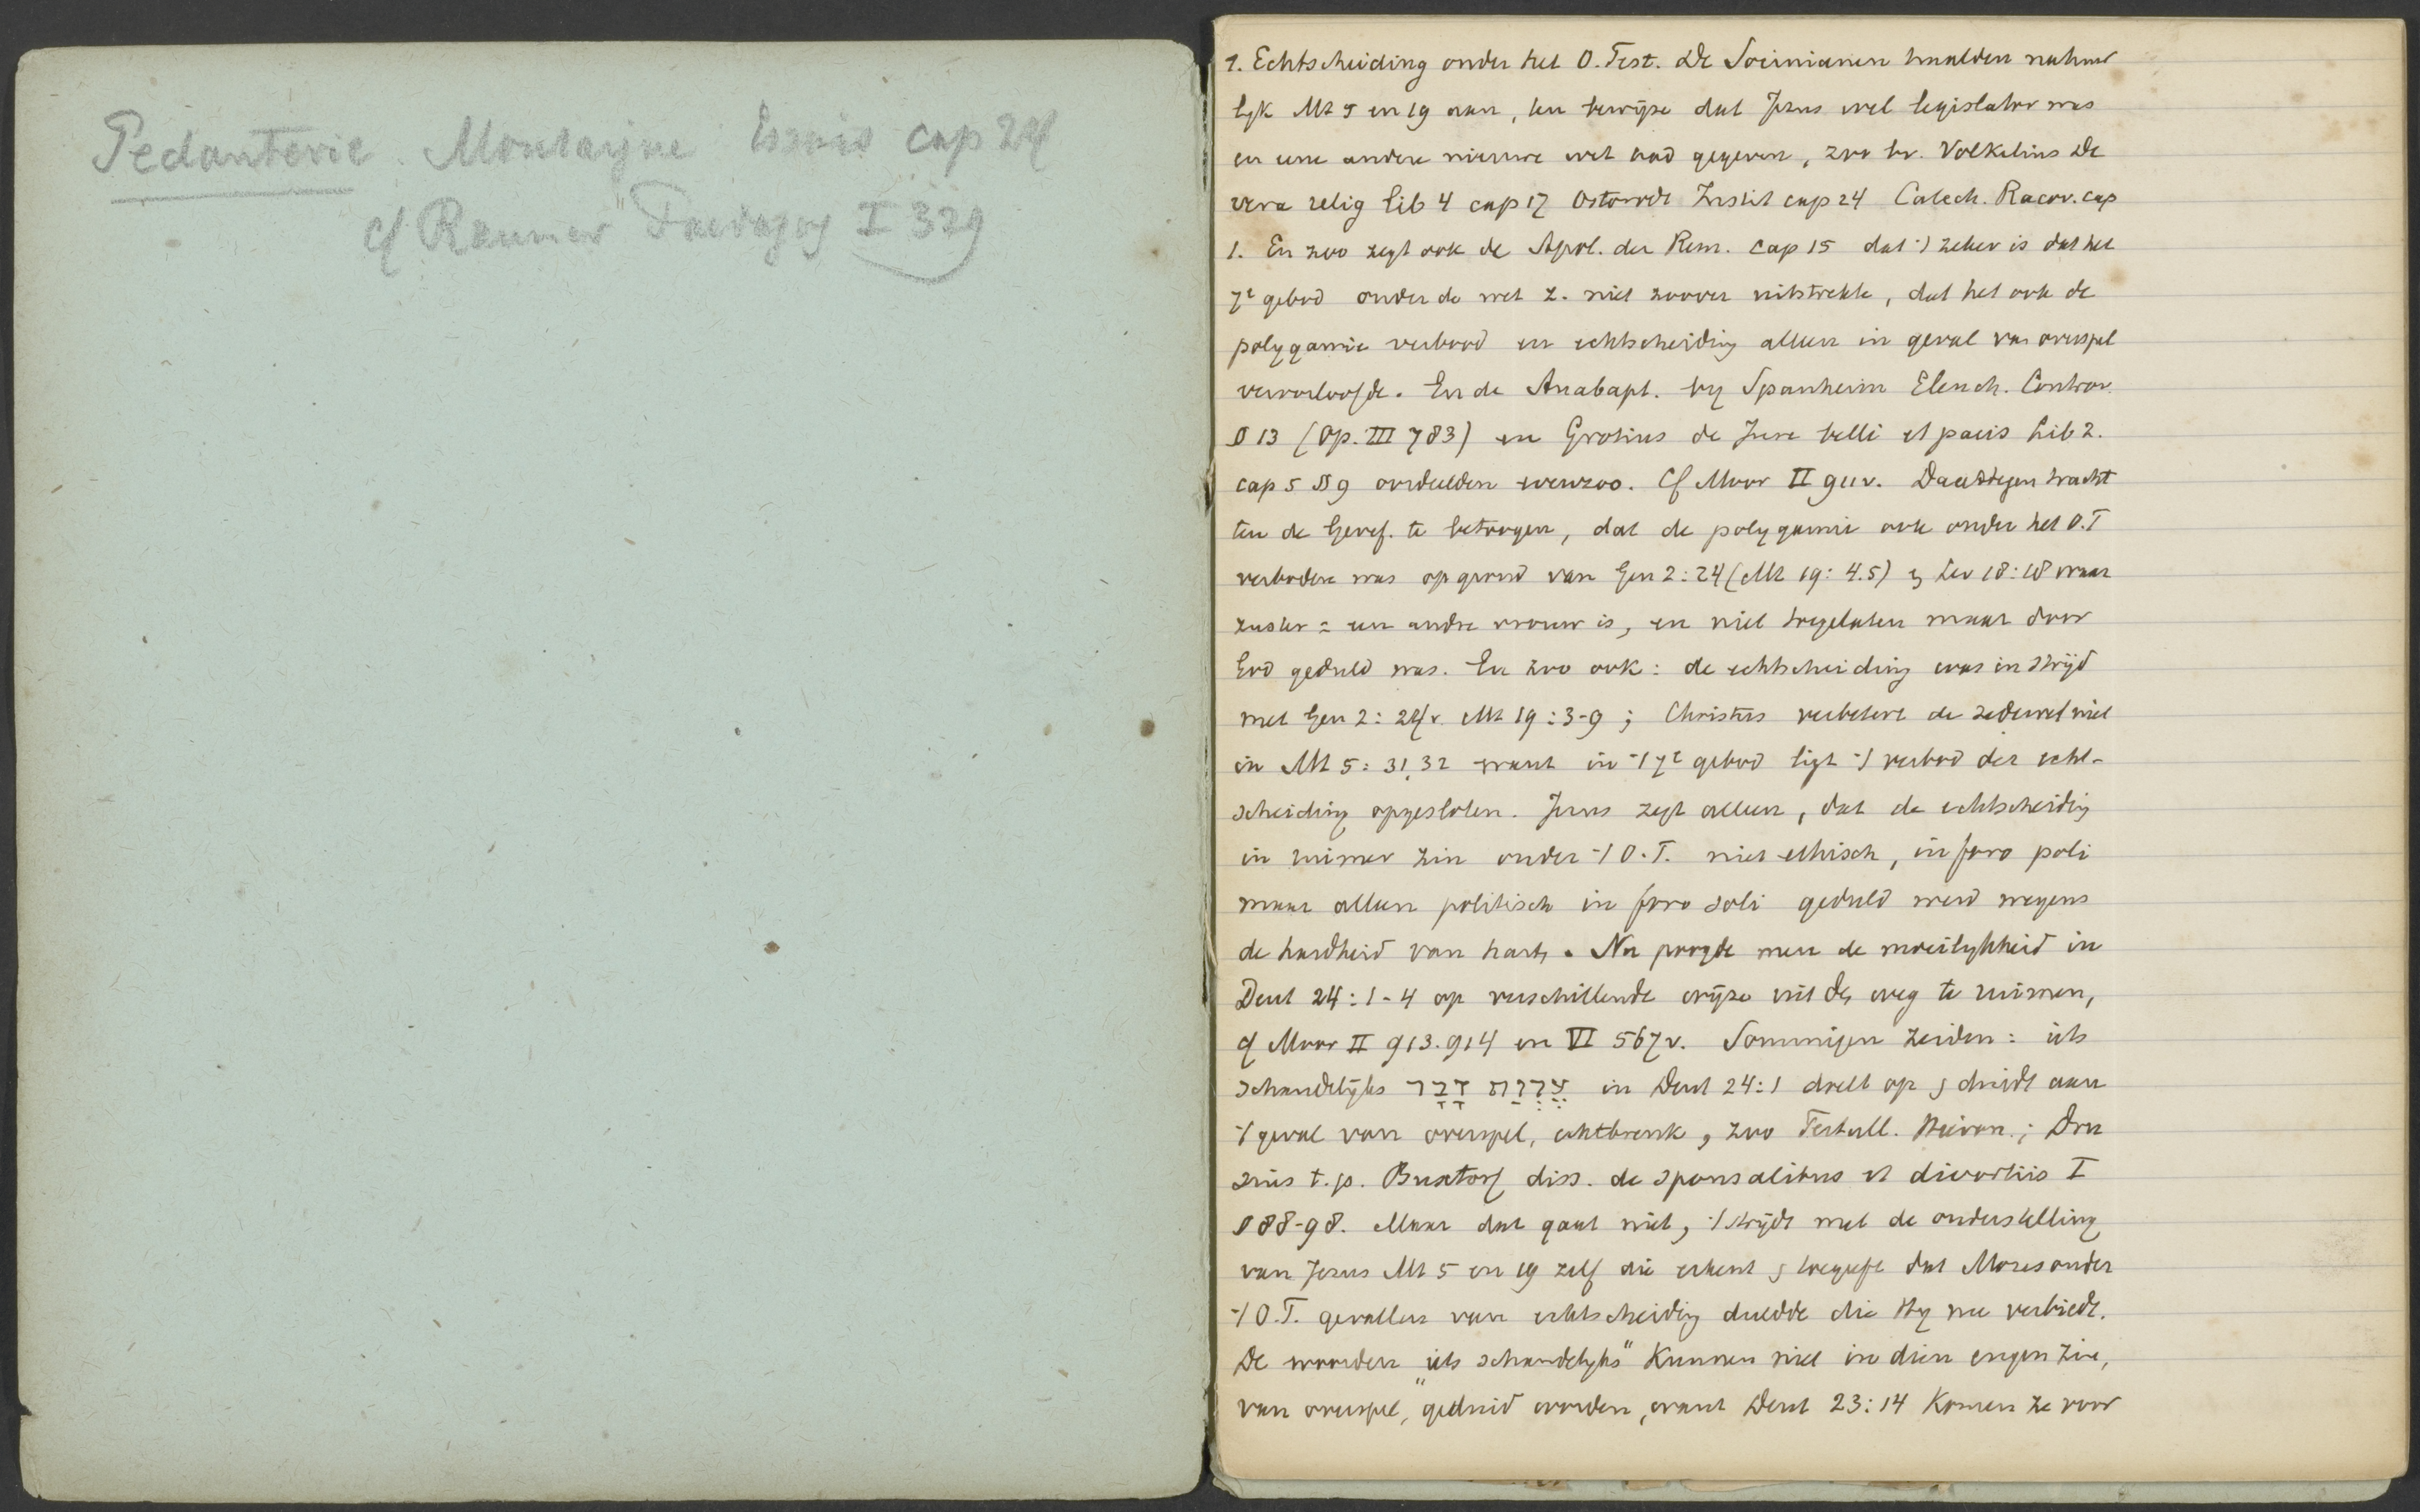 Pedanterie. Montaigne Essais cap 24
cf Raumer Paedagog I 329
1. Echtscheiding onder het O. Test. De Socinianen haalden natuur
lyk Mt 5 en 19 aan, ten bewijze dat Jezus wel legislator was
en eene andere nieuwe wet had gegeven, zoo bv. Volkelius De
vera relig lib 4 cap 17 Ostorodt Instit cap 24 Catech. Racov. cap
1. En zoo zegt ook de Apol. der Rem. cap 15 dat ⁒ zeker is dat het
7e gebod onder de wet z. niet zoover uitstrekte, dat het ook de
polygamie verbood en echtscheiding alleen in geval van overspel
veroorloofde. En de Anabapt. by Spanheim Elench. Controv.
§ 13 (Op. III 783) en Grotius de Jure belli et pacis Lib 2.
cap 5 §§ 9 oordeelden evenzoo. Cf Moor II 911v. Daartegen tracht
ten de Geref. te betoogen, dat de polygamie ook onder het O.T
verboden was op grond van Gen 2:24 (Mt 19: 4.5) en Lev 18:18 waar
zuster = een andre vrouw is, en niet toegelaten maar door
God geduld was. En zoo ook: de echtscheiding was in strijd
met Gen 2: 24v. Mt 19:3-9; Christus verbetert de zedewet niet
in Mt 5: 31,32 want in ⁒ 7e gebod ligt ⁒ verbod der echt-
scheiding opgesloten. Jezus zegt alleen, dat de echtscheidig
in ruimer zin onder ⁒ O.T. niet ethisch, in foro poli
maar alleen politisch in foro soli geduld werd wegens
de hardheid van harten. Nu poogde men de moeilykheid in
Deut 24:1-4 op verschillende wijze uit den weg te ruimen,
cf Moor II 913.914 en VI 567v. Sommigen zeiden: iets
schandelijks עֶרְוַת דָּבָר in Deut 24:1 doelt op en duidt aan
⁒ geval van overspel, echtbreuk, zoo Tertull. Hieron.; Dru
sius t.p. Buxtorf diss. de sponsalibus et divortiis I
§ 88-98. Maar dat gaat niet, ⁒ strijdt met de onderstelling
van Jezus Mt 5 en 19 zelf die erkent en toegeeft dat Mozes onder
⁒ O.T. gevallen van echtscheidig duldde die Hy nu verbiedt.
De woorden "iets schandelyks" kunnen niet in dien engen zin,
van overspel, geduid worden, want Deut 23:14 komen ze voor